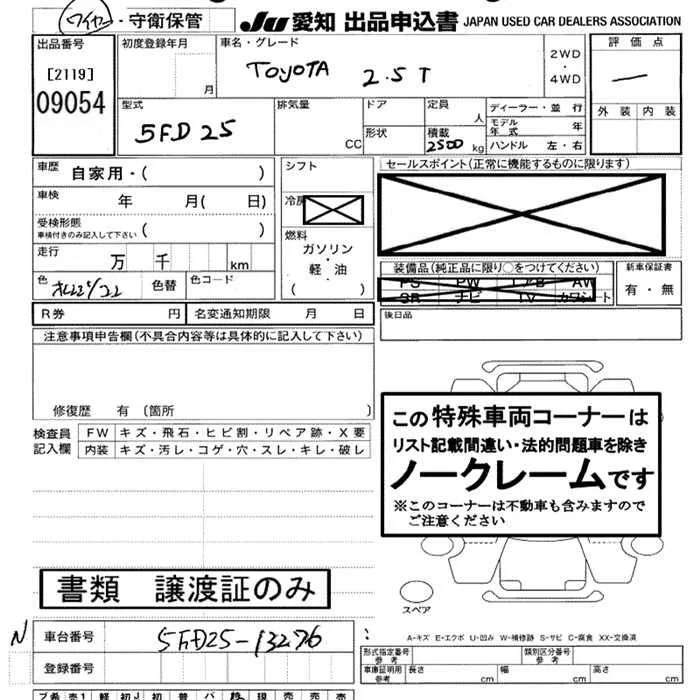 ワイヤー・守衛保管
JU 愛知 出品申込書 JAPAN USED CAR DEALERS ASSOCIATION
出品番号
[2119]
09054
初度登録年月
月
車名・グレード
TOYOTA 2.5T
2WD
・
4WD
評価点
—
外装 内装
型式
5FD25
排気量
CC
ドア
形状
定員
人
積載
2500 kg
ディーラー・並行
モデル年式 年
ハンドル 左・右
車歴 自家用・( )
車検 年 月( 日)
受検形態
車検付きのみ記入して下さい ( )
走行 万 千 km
色 オレンジ/22 色替 色コード
シフト
冷房
燃料
ガソリン
・
軽・油
( )
セールスポイント(正常に機能するものに限ります)
装備品(純正品に限り○をつけてください)
PS PW エアB AW
SR ナビ TV カワシート
新車保証書
有・無
R券 円 名変通知期限 月 日
後日品
注意事項申告欄(不具合内容等は具体的に記入して下さい)
修復歴 有 〔箇所 〕
検査員記入欄
FW キズ・飛石・ヒビ割・リペア跡・X要
内装 キズ・汚レ・コゲ・穴・スレ・キレ・破レ
この特殊車両コーナーは
リスト記載間違い・法的問題車を除き
ノークレームです
※このコーナーは不動車も含みますので
ご注意ください
書類 譲渡証のみ
スペア
N 車台番号 5FD25-13276
登録番号
A-キズ E-エクボ U-凹み W-補修跡 S-サビ C-腐食 XX-交換済
形式指定番号 参考
類別区分番号 参考
車庫証明用 参考 長さ cm 幅 cm 高さ cm